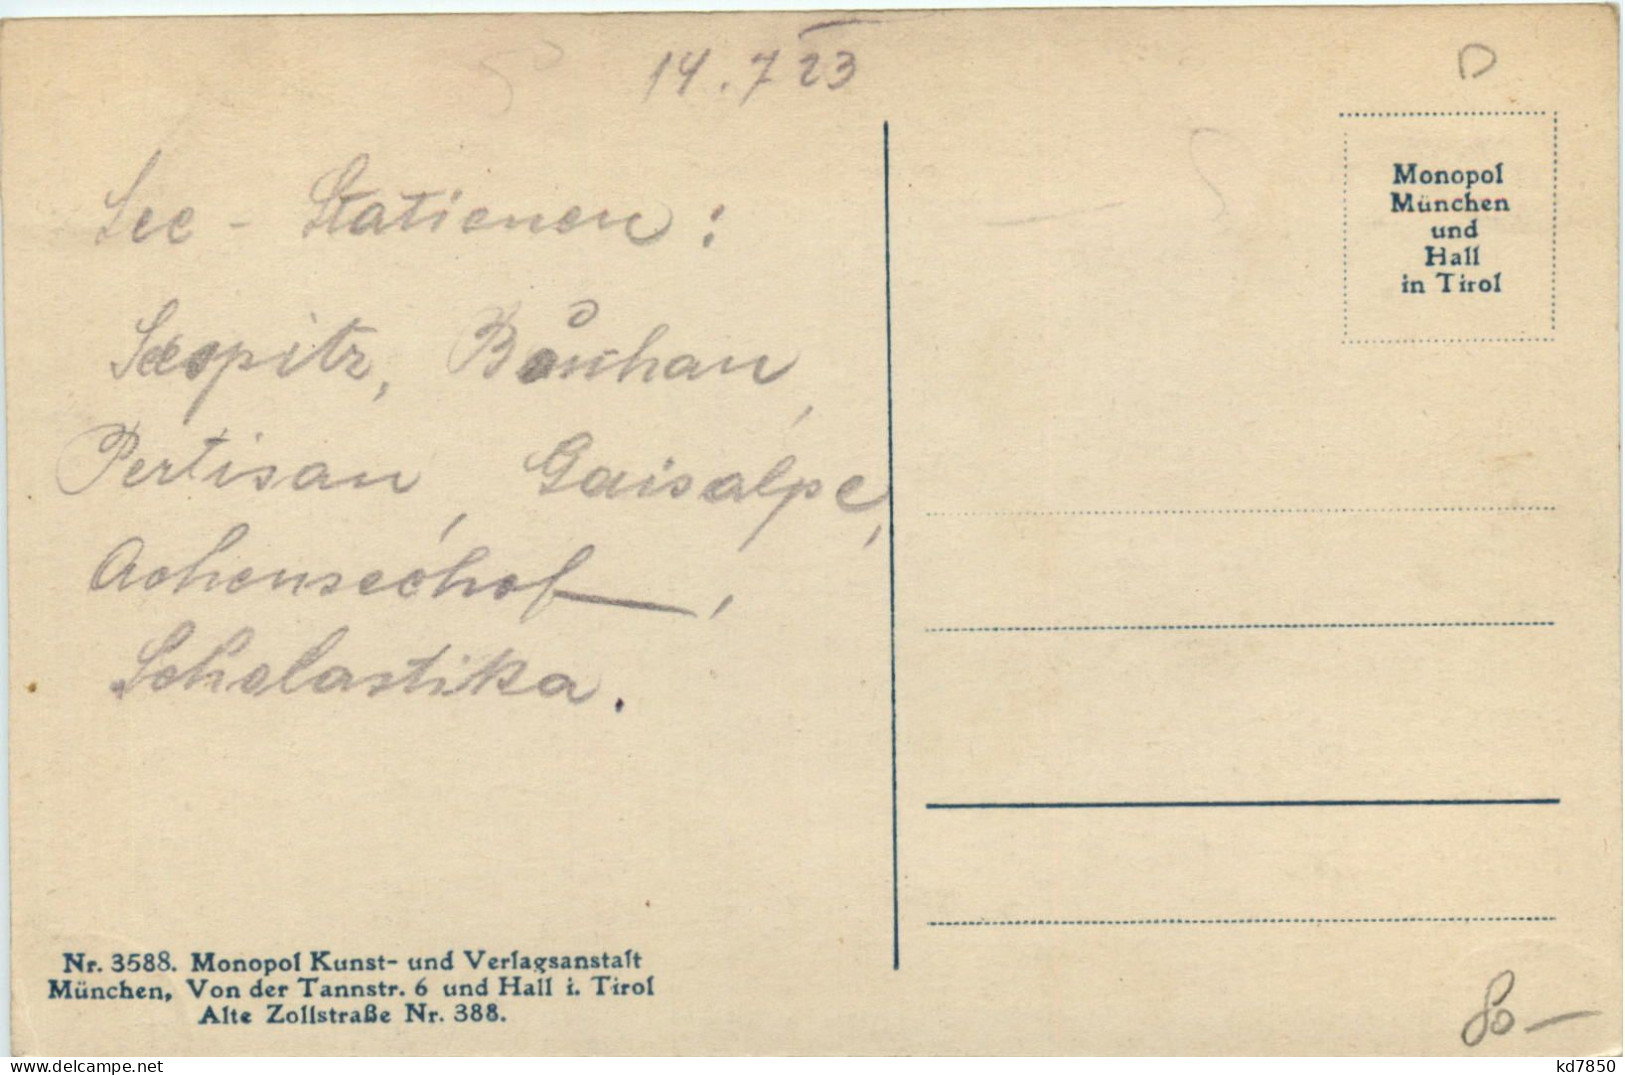 14.7 23
See - Stationen:
Seespitz,
Pertisau, Gaisalpe,
Achenseehof,
Scholastika.
D
Monopol
München
und
Hall
in Tirol
Nr. 3588. Monopol Kunst- und Verlagsanstalt
München, Von der Tannstr. 6 und Hall i. Tirol
Alte Zollstraße Nr. 388.
80-
delcampe.net
kd7850